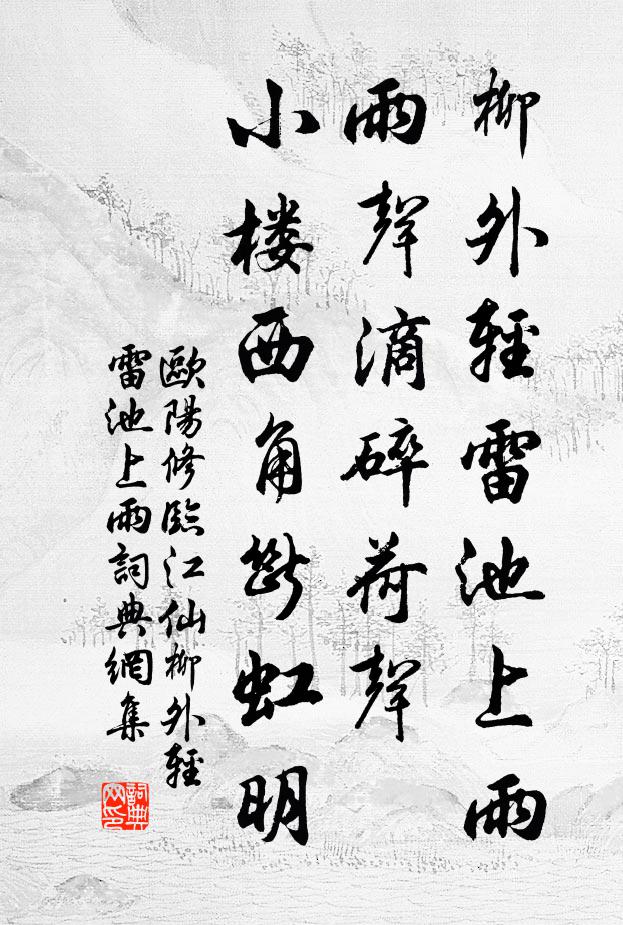 柳外輕雷池上雨
雨聲滴碎荷聲
小楼西角斷虹明
歐陽修臨江仙柳外輕
雷池上雨詞典網集
詞典
网印